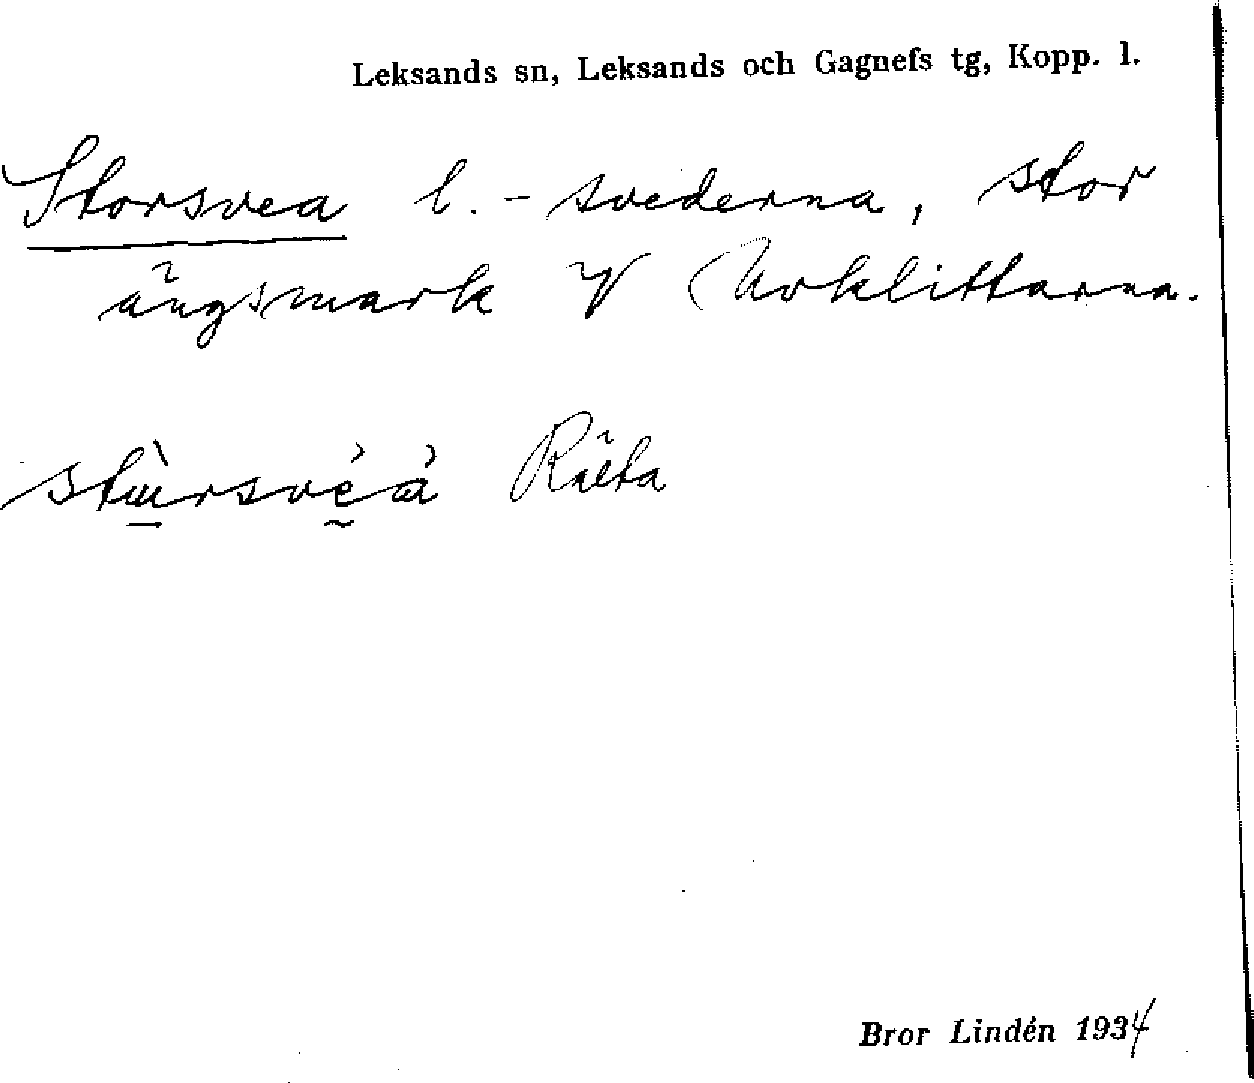 Leksands sn, Leksands och Gagnefs tg, Kopp. l.
Storsvea l. - svederna, stor
ängsmark V Urklittarna.
stùrsvèà Räta
Bror Lindén 1934